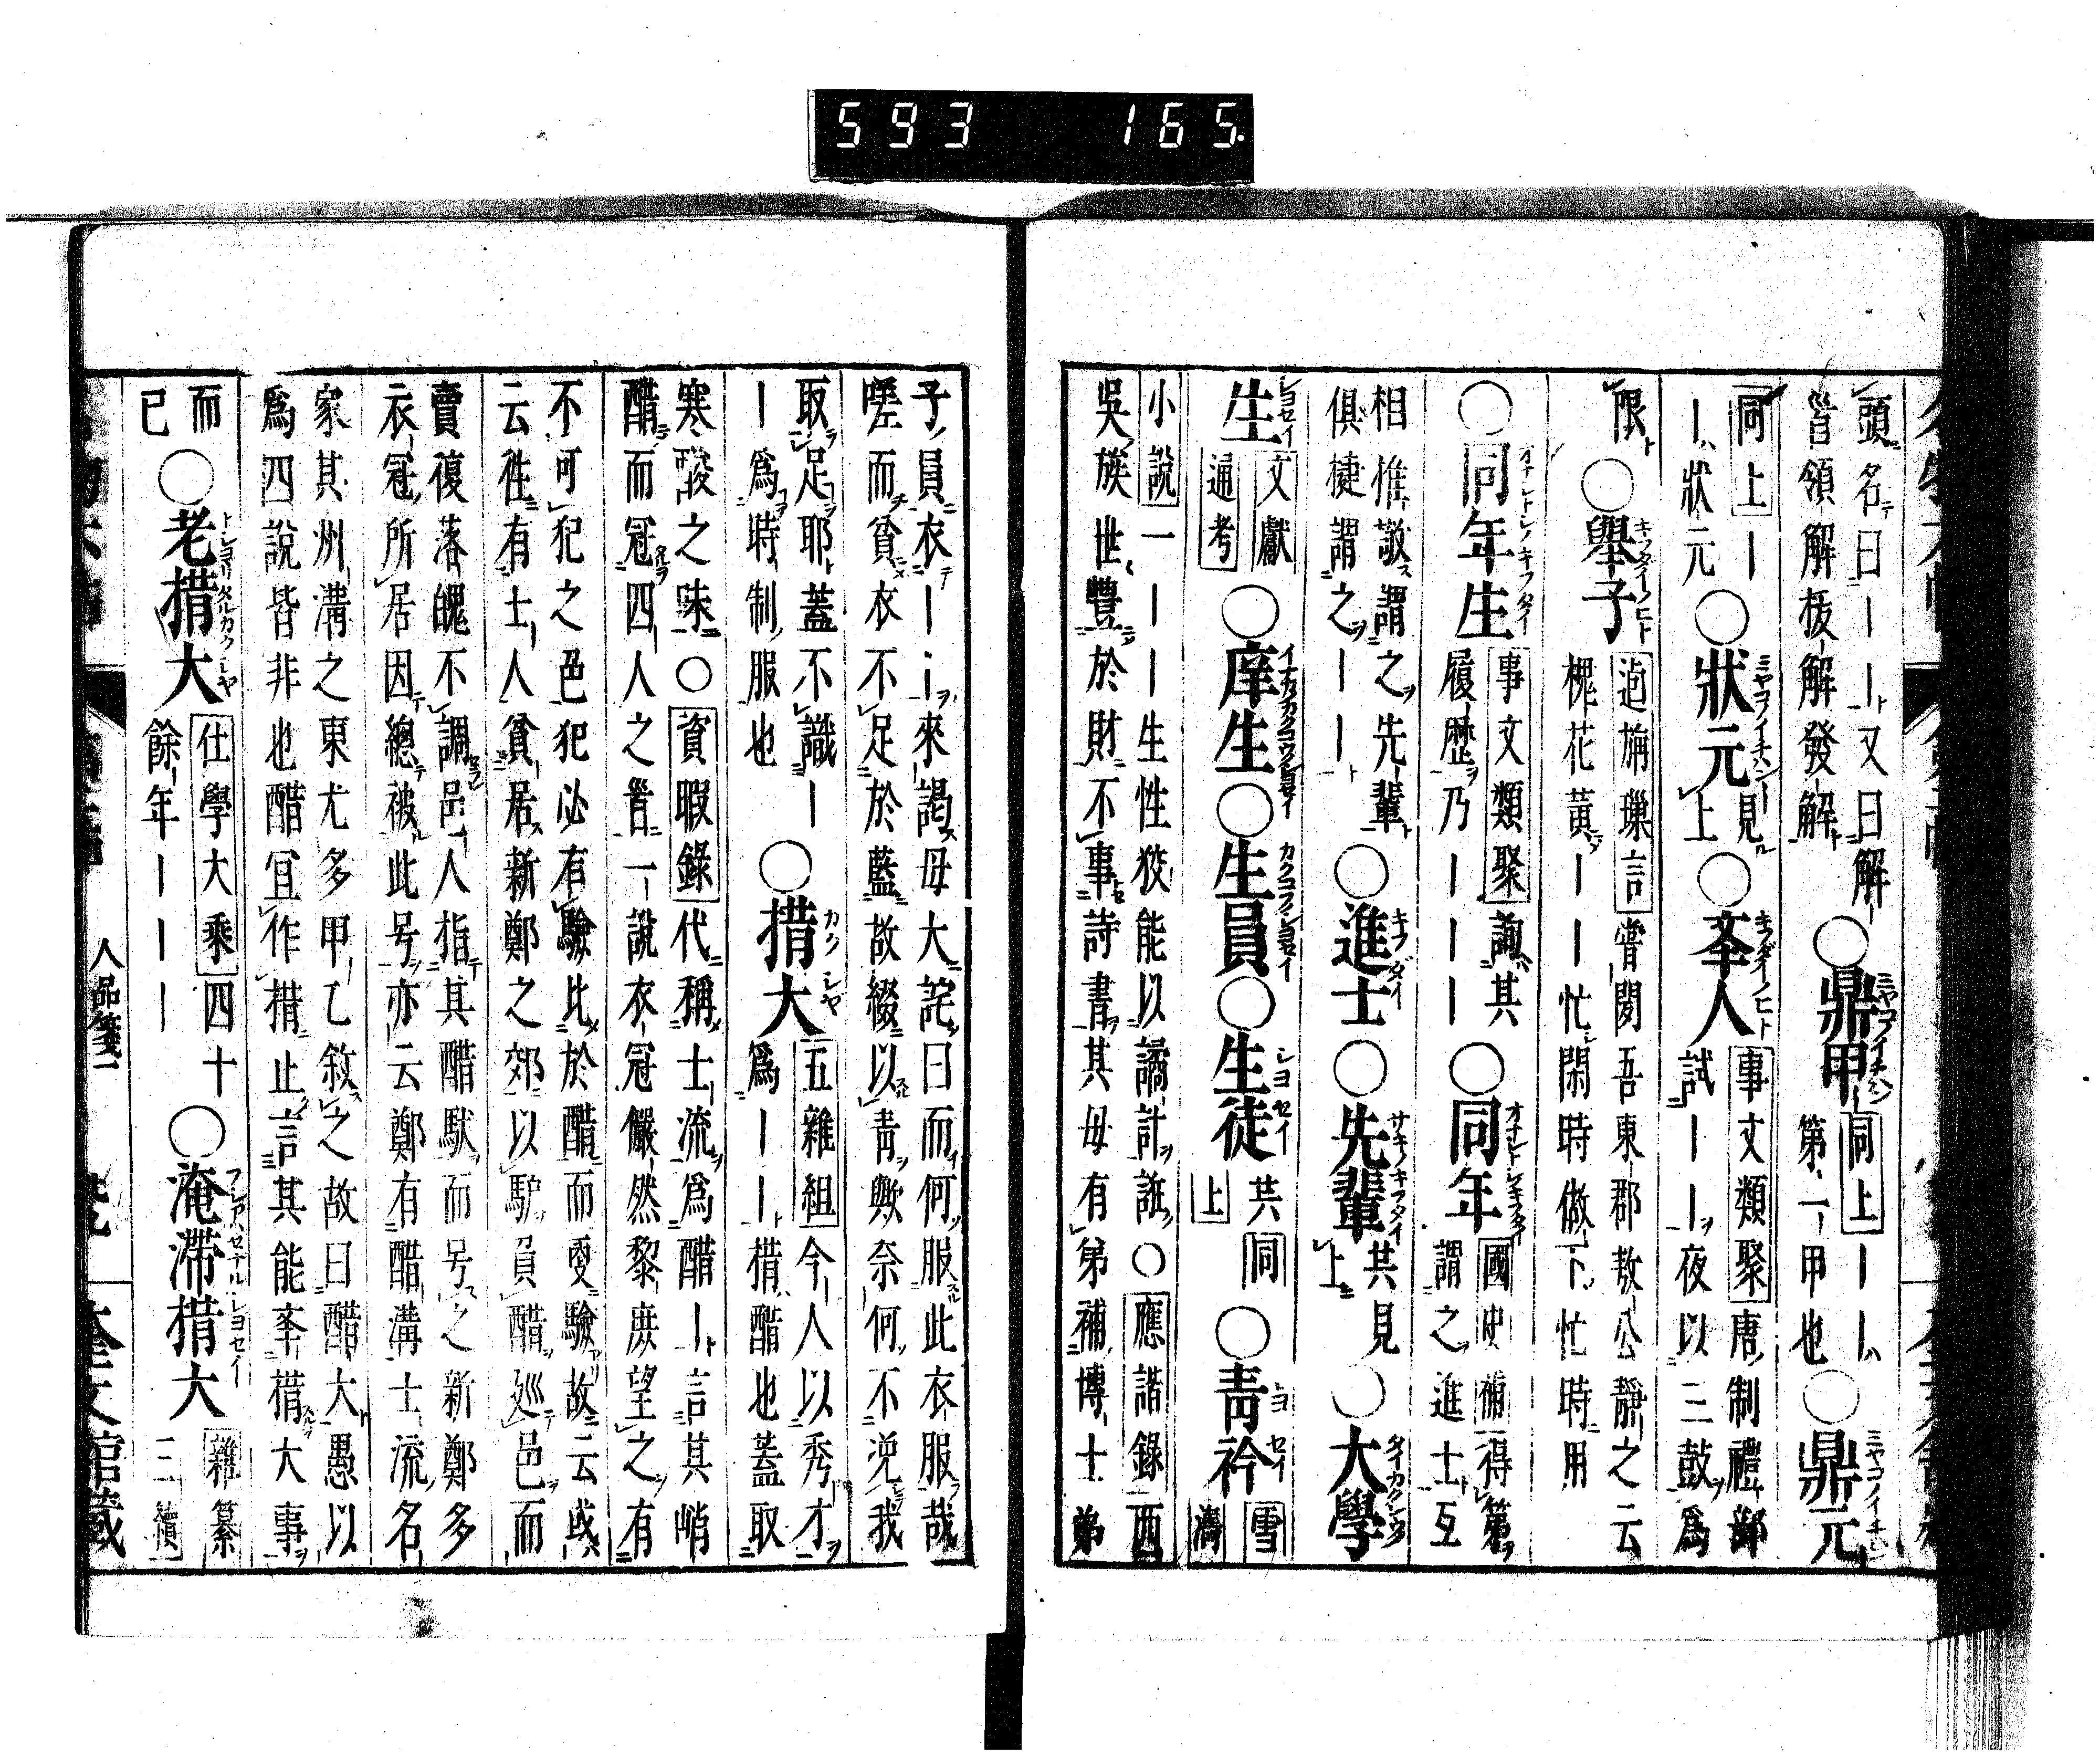 593 165.
頭名曰｜｜｜又曰解
首領解拔解發解
○鼎甲
同上｜｜
第一甲也
○鼎元
同上｜
｜狀元
○狀元
見
上
○李人
事文類聚唐制禮部
試｜｜｜夜以三鼓爲
限
○舉子
槐花黄｜｜｜忙閑時做下忙時用
○同年生
事文類聚詢其
履歴乃｜｜｜
○同年
國史補得第
謂之進士互
相推敬謂之先輩
俱捷謂之｜｜
○進士○先輩
共見
上
○大學
生
文獻
通考
○庠生○生員○生徒
共同
上
○青衿
雪
濤
小説一｜｜生性狡能以譎計誑○應諧錄西
吳族世豐於財不事詩書其母有弟補博士弟
子員衣｜｜來謁母大詫曰而何服此衣服哉
嗟而貧衣不足於藍故綴以青歟奈何不浼我
取足耶蓋不識｜
｜爲時制服也
○措大
五雜組今人以秀才
爲｜｜措醋也蓋取
寒酸之味○資暇錄代稱士流爲醋｜言其峭
醋而冠四人之首一說衣冠儼然黎庶望之有
不可犯之色犯必有驗比於醋而更驗故云或
云徃有士人貧居新鄭之郊以驢負醋巡邑而
賣復落魄不調邑人指其醋馱而号之新鄭多
衣冠所居因總被此号亦云鄭有醋溝士流名
家其州溝之東尤多甲乙敘之故曰醋大愚以
爲四説皆非也醋冝作措止言其能㪯措大事
而
已
○老措大
仕學大乘四十
餘年｜｜｜
○淹滯措大
雜纂
三續
人品箋一